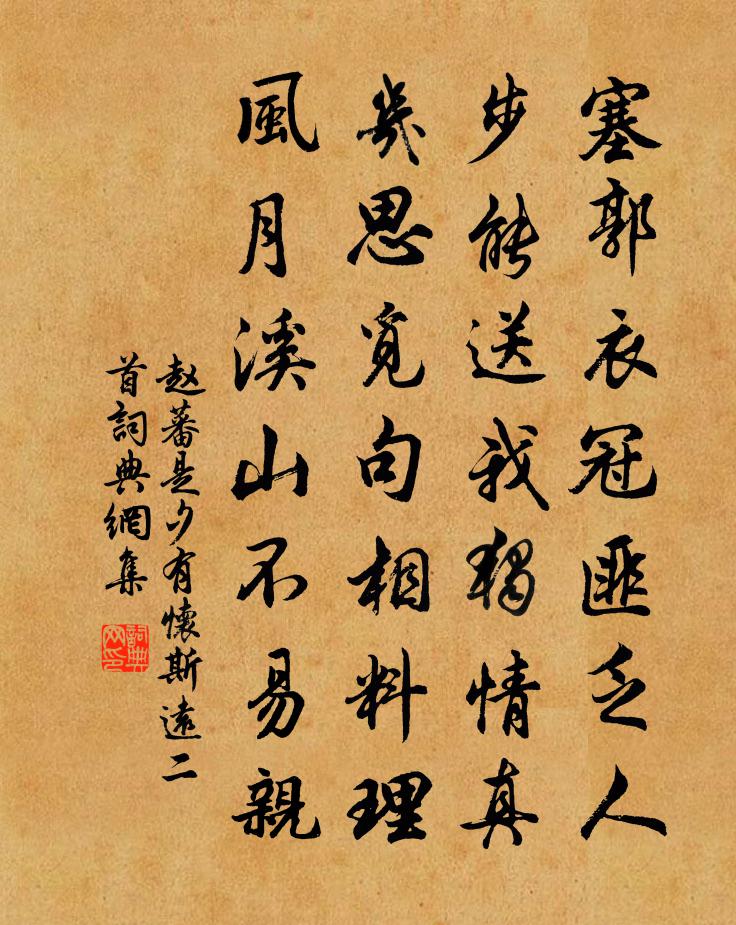 塞郭衣冠匪乏人
步能送我獨情真
幾思覓句相料理
風月溪山不易親
赵蕃是夕有懷斯遠二
首詞典網集
詞典网印